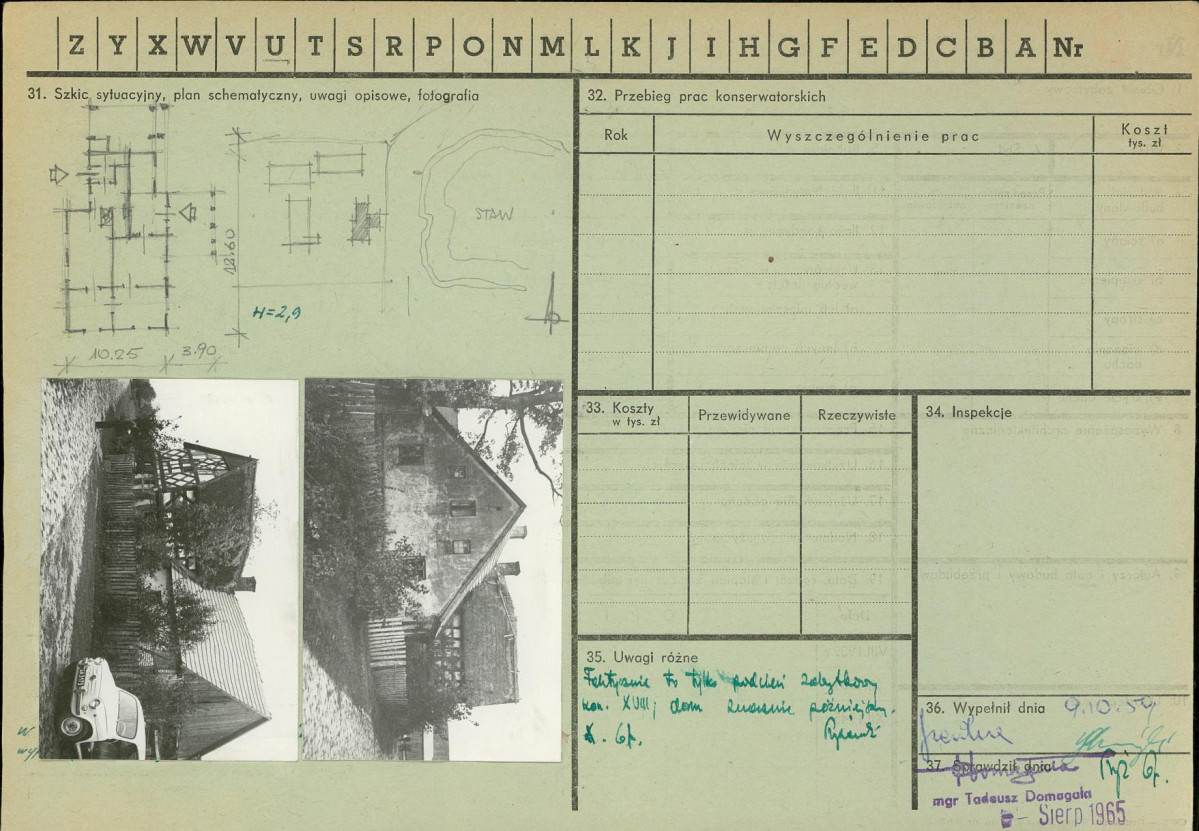 Z Y X W V U T S R P O N M L K J I H G F E D C B A Nr
31. Szkic sytuacyjny, plan schematyczny, uwagi opisowe, fotografia
STAW
18.60
H=2,9
10.25 3.90
32. Przebieg prac konserwatorskich
Rok Wyszczególnienie prac Koszt
tys. zł
33. Koszty
w tys. zł
Przewidywane Rzeczywiste
34. Inspekcje
35. Uwagi różne
Faktycznie to tylko podcień zabytkowy
kon. XVIII; dom znacznie późniejszy.
36. Wypełnił dnia 9.10.59
37. Sprawdził dnia
mgr Tadeusz Domagała
- Sierp 1965